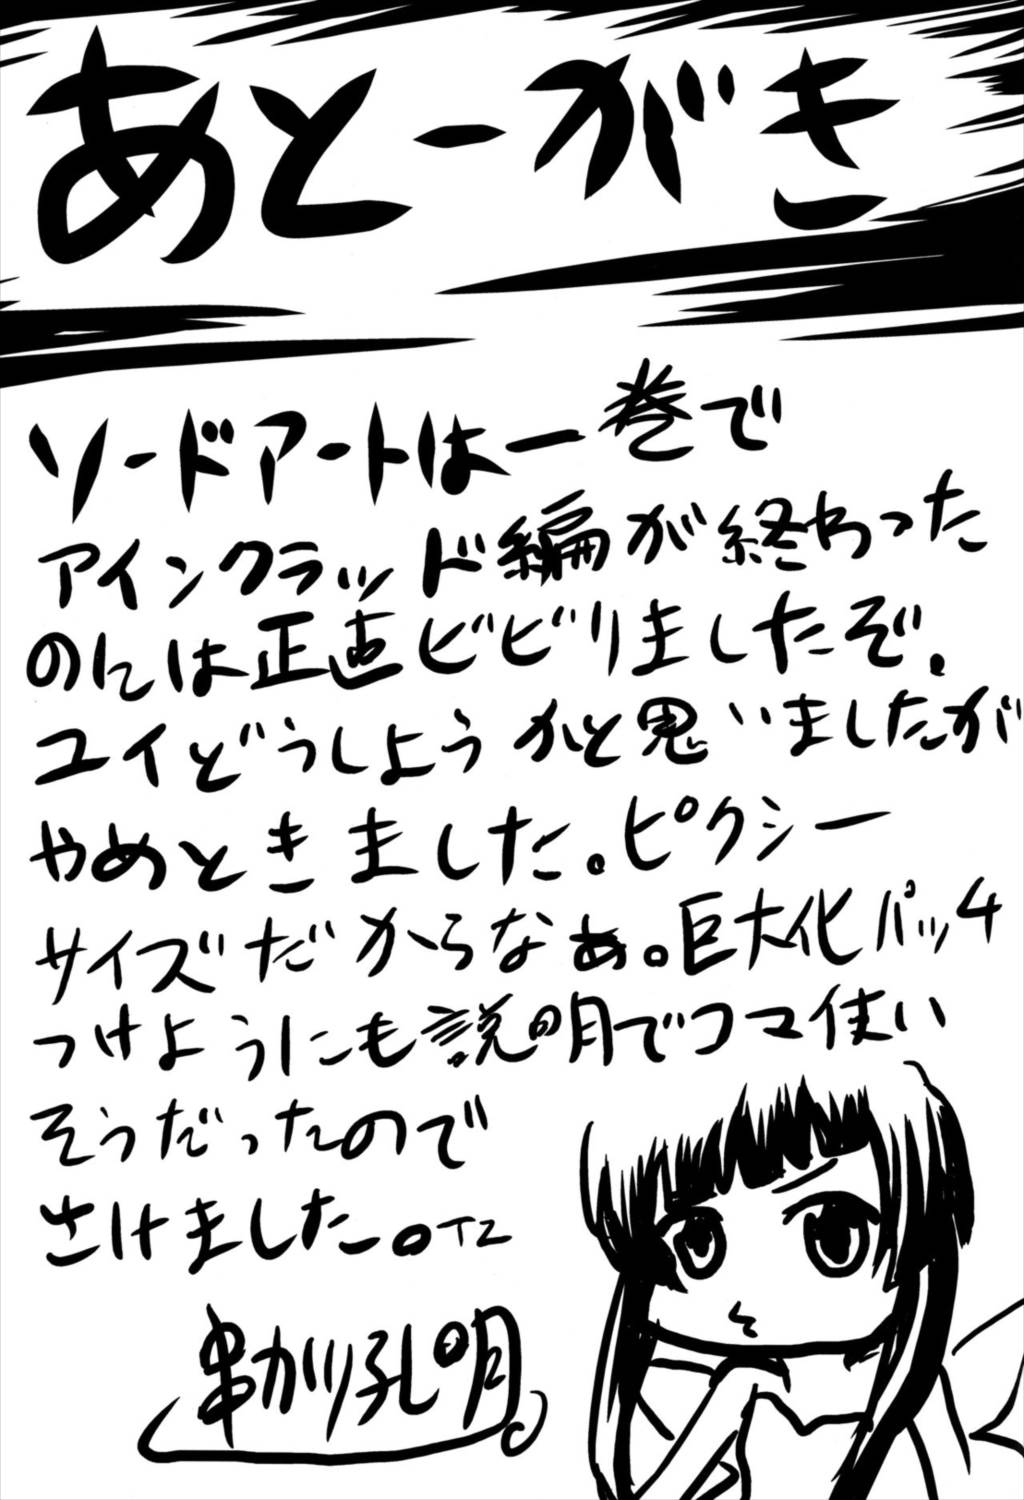 あとーがき
ソードアートは一巻で
アインクラッド編が終わった
のには正直ビビりましたぞ。
ユイどうしようかと思いましたが
やめときました。ピクシー
サイズだからなぁ。巨大化パッチ
つけようにも説明でコマ使い
そうだったので
さけました。TZ
串カツ孔明。